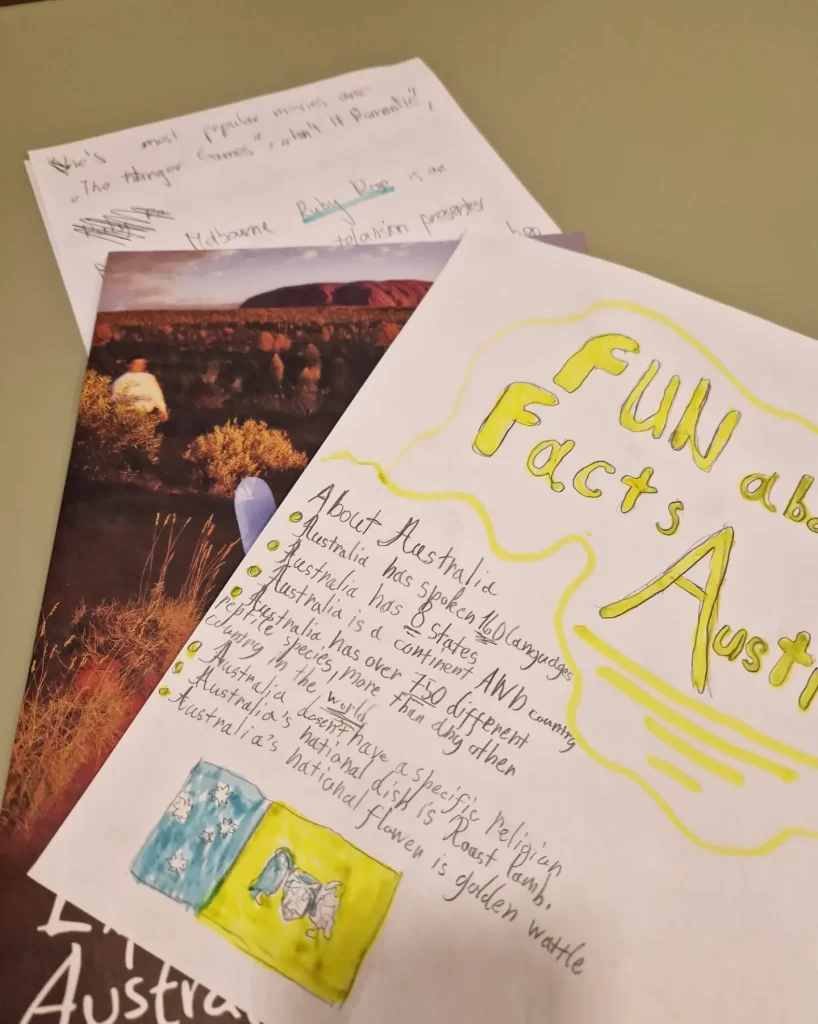 She's most popular movies are
"The Hunger Games", "Isn't It Romantic",
Melbourne Ruby Rose is an
television presenter
her
FUN
Facts abo
Austr
About Australia
Australia has spoken 160 languages
Australia has 8 states
Australia is a continent AND country
Australia has over 750 different
reptile species, more than any other
country in the world
Australia doesn't have a specific religion
Australia's national dish is Roast lamb.
Australia's national flower is golden wattle
Austral